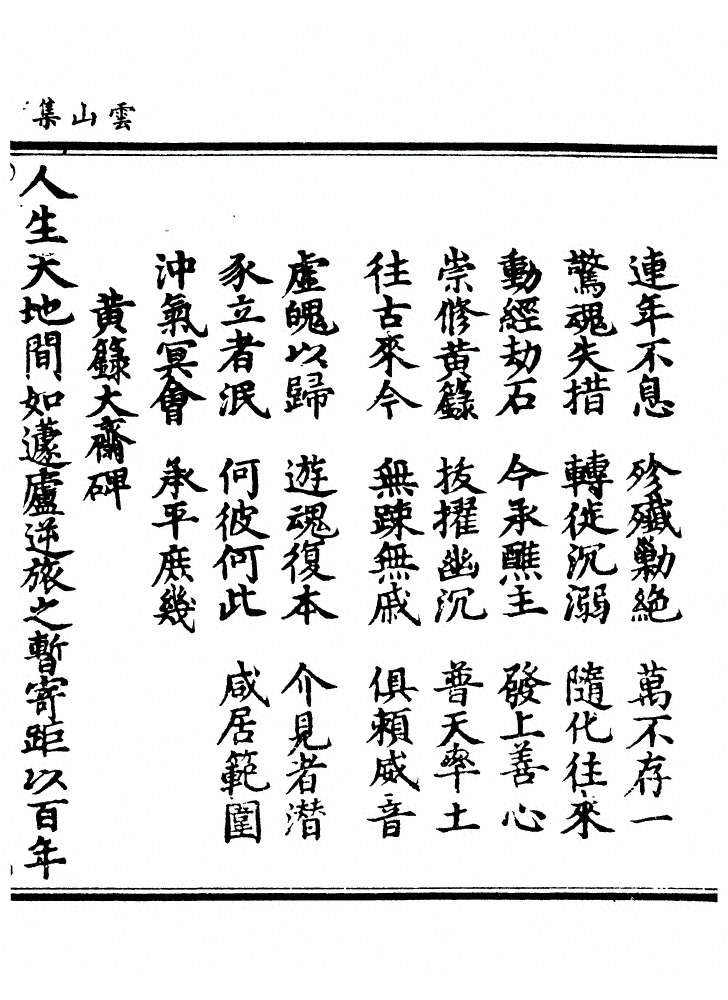 雲山集
連年不息 殄殲勦絕 萬不存一
驚魂失措 轉徙沉溺 隨化往來
動經劫石 今承醮主 發上善心
崇修黃籙 拔擢幽沉 普天率土
往古來今 無踈無戚 俱賴威音
虛魄以歸 遊魂復本 介見者潛
豕立者泯 何彼何此 咸居範圍
沖氣冥會 承平庶幾
黃籙大齋碑
人生天地間如蘧廬逆旅之暫寄距以百年